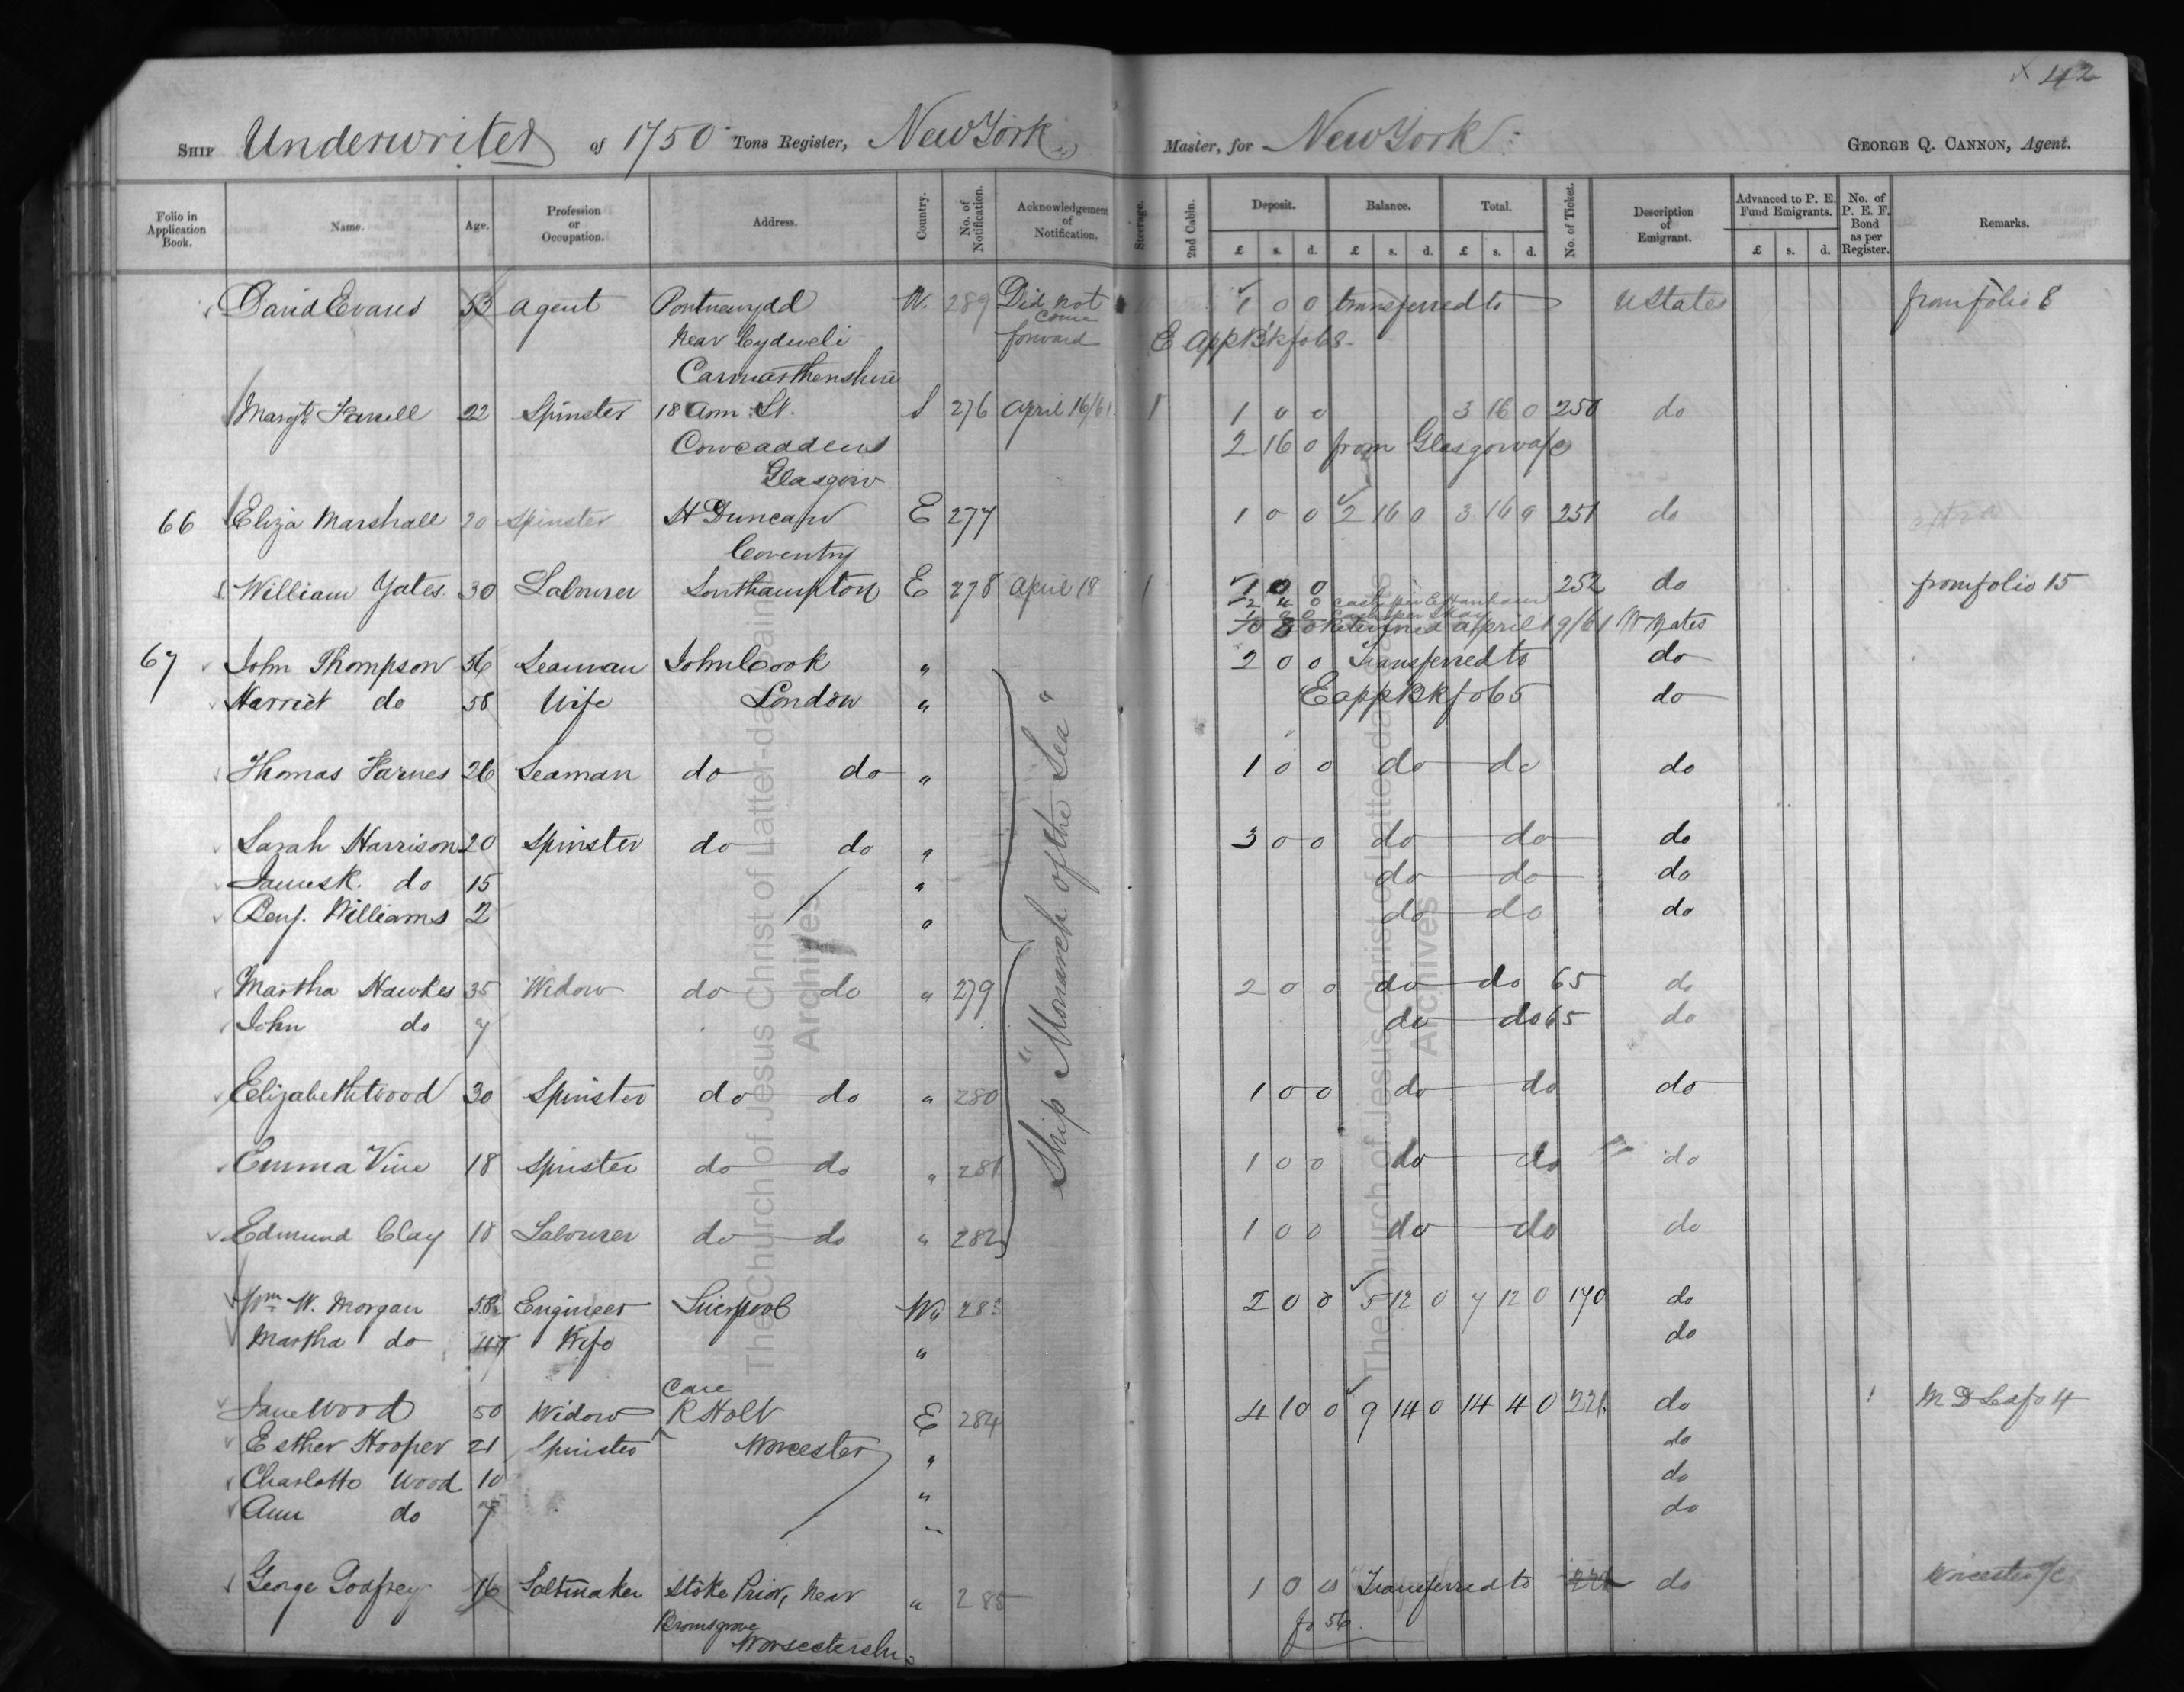 × 42
SHIP Underwriter of 1750 Tons Register, New York Master, for New York GEORGE Q. CANNON, Agent.
Folio in Application Book. Name. Age. Profession or Occupation. Address. Country. No. of Notification. Acknowledgement of Notification. Steerage. 2nd Cabin. Deposit. Balance. Total. No. of Ticket. Description of Emigrant. Advanced to P. E. Fund Emigrants. No. of P. E. F. Bond as per Register. Remarks.
£ s. d. £ s. d. £ s. d. £ s. d.
David Evans 53 agent Pontnewydd W. 289 Did not come 1 0 0 transferred to U States from folio 8
Near Cydweli forward E App Bk fo 68
Carmarthenshire
Margt. Farrell 22 Spinster 18 Ann St. S 276 April 16/61 1 1 0 0 3 16 0 250 do
Cowcaddens 2 16 0 from Glasgow a/c
Glasgow
66 Eliza Marshall 20 Spinster H Duncan E 277 1 0 0 2 16 0 3 16 0 251 do extra
Coventry
William Yates 30 Labourer Southampton E 278 April 18 1 1 0 0 252 do from folio 15
2 4 0 cash per E Hanham
8 0 Returned April 19/61 W Yates
67 John Thompson 56 Seaman John Cook " 2 0 0 Transferred to do
Harriet do 58 Wife London " E app Bk fo 65 do
Thomas Farnes 26 Seaman do do " 1 0 0 do do do
Sarah Harrison 20 Spinster do do " 3 0 0 do do do
James K. do 15 " do do do
Benj. Williams 2 " do do do
Ship "Monarch of the Sea"
Martha Hawkes 35 Widow do do " 279 2 0 0 do do 65 do
John do 7 do do 65 do
Elizabeth Wood 30 Spinster do do " 280 1 0 0 do do do
Emma Vine 18 Spinster do do " 281 1 0 0 do do do
Edmund Clay 18 Labourer do do " 282 1 0 0 do do do
Wm. W. Morgan 58 Engineer Liverpool Wa 283 2 0 0 5 12 0 7 12 0 170 do
Martha do 47 Wife " do
Care
Jane Wood 50 Widow R Holt E 284 4 10 0 9 14 0 14 4 0 221 do M D Lea fo 4
Esther Hooper 21 Spinster Worcester " do
Charlotte Wood 10 " do
Ann do 7 " do
George Godfrey 16 Saltmaker Stoke Prior, Near " 285 1 0 0 Transferred to do Worcester a/c
Bromsgrove fo 56
Worsestershr.
The Church of Jesus Christ of Latter-day Saints
Archives
The Church of Jesus Christ of Latter-day Saints
Archives